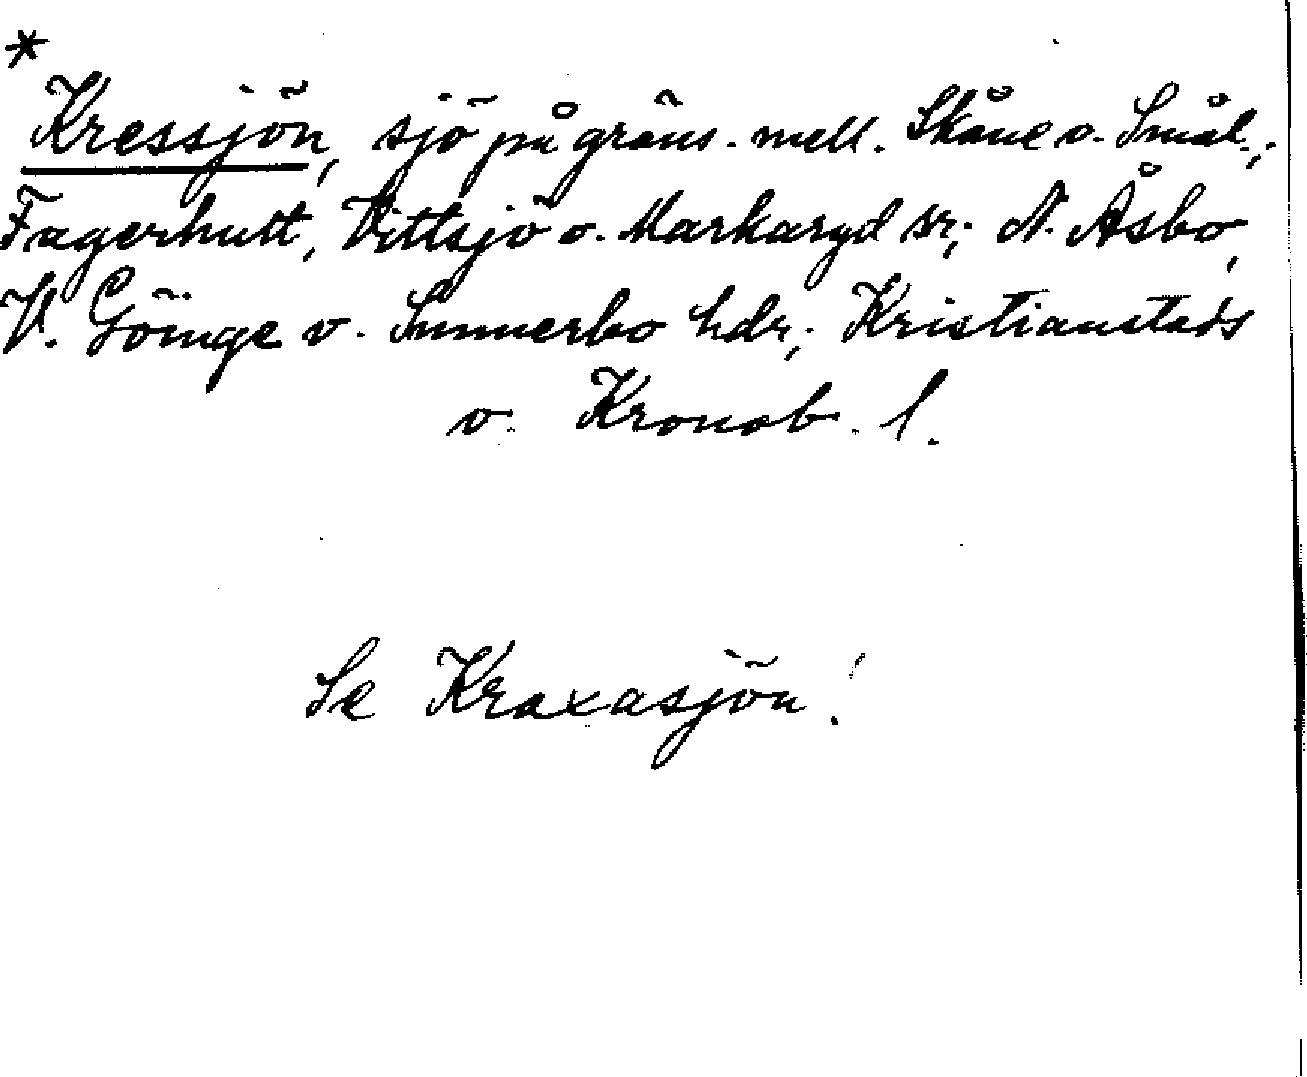 *
Kressjön, sjö på gräns. mell. Skåne o. Smål.;
Fagerhult, Vittsjö o. Markaryd sr; N. Åsbo,
V. Göinge o. Sunnerbo hdr; Kristianstads
o. Kronob. l.
Se Kraxasjön!